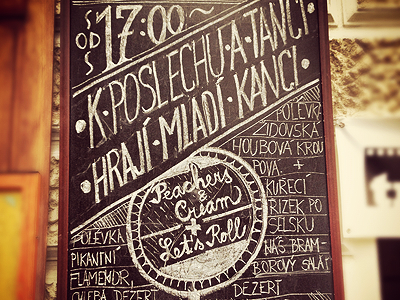 OD 17:00~
K·POSLECHU·A·TANCI·
·HRAJÍ·MLADÍ·KANCI·
Peachers
&
Cream
+
Let's Roll
POLÉVKA
PIKANTNÍ
FLAMENDR,
CHLEBA, DEZERT
POLÉVK.
ŽIDOVSKÁ
HOUBOVÁ KROU
POVÁ +
KUŘECÍ
ŘÍZEK PO
SELSKU
NÁŠ BRAM-
BOROVÝ SALÁT
DEZERT